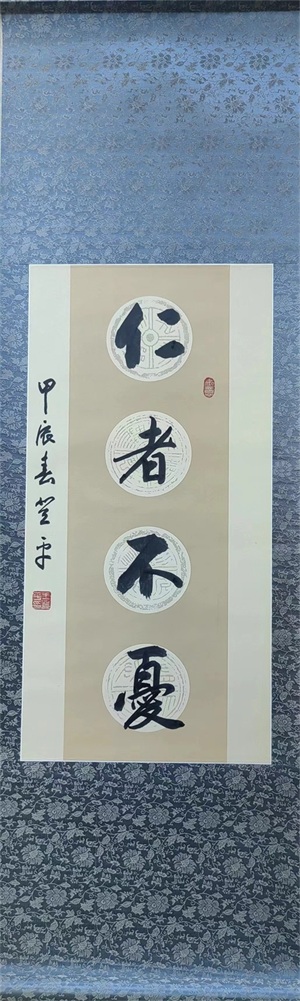 仁者不憂
甲辰春